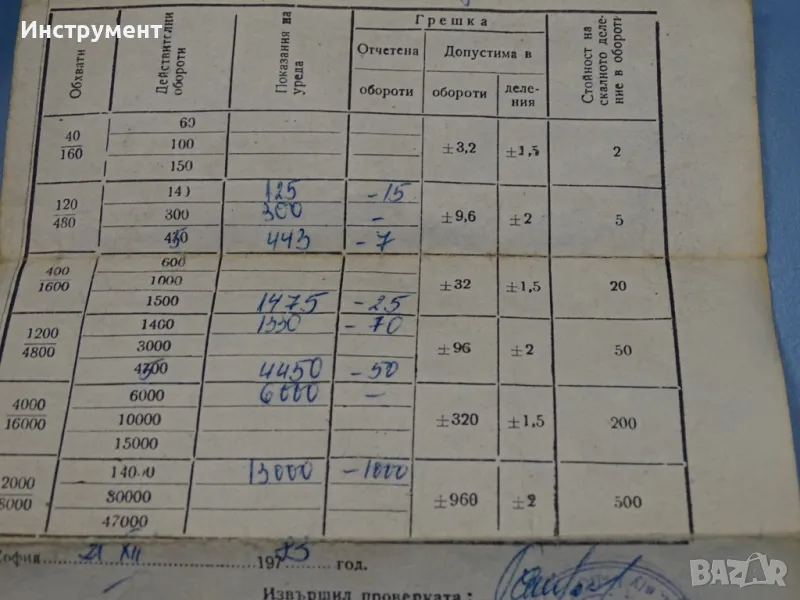 Инструмент
Обхвати
Действителни обороти
Показания на уреда
Грешка
Отчетена
Допустима в
обороти
обороти
деления
Стойност на скалното деление в обороти
40/160
60
100
150
±3,2
±1,5
2
120/480
140 125 -15
300 300 -
450 443 -7
±9,6
±2
5
400/1600
600
1000
1500 1475 -25
±32
±1,5
20
1200/4800
1400 1330 -70
3000
4500 4450 -50
±96
±2
50
4000/16000
6000 6000 -
10000
15000
±320
±1,5
200
2000/8000
14000 13000 -1000
30000
47000
±960
±2
500
София 21 XII 1973 год.
Извършил проверката:
BAZAR
bg